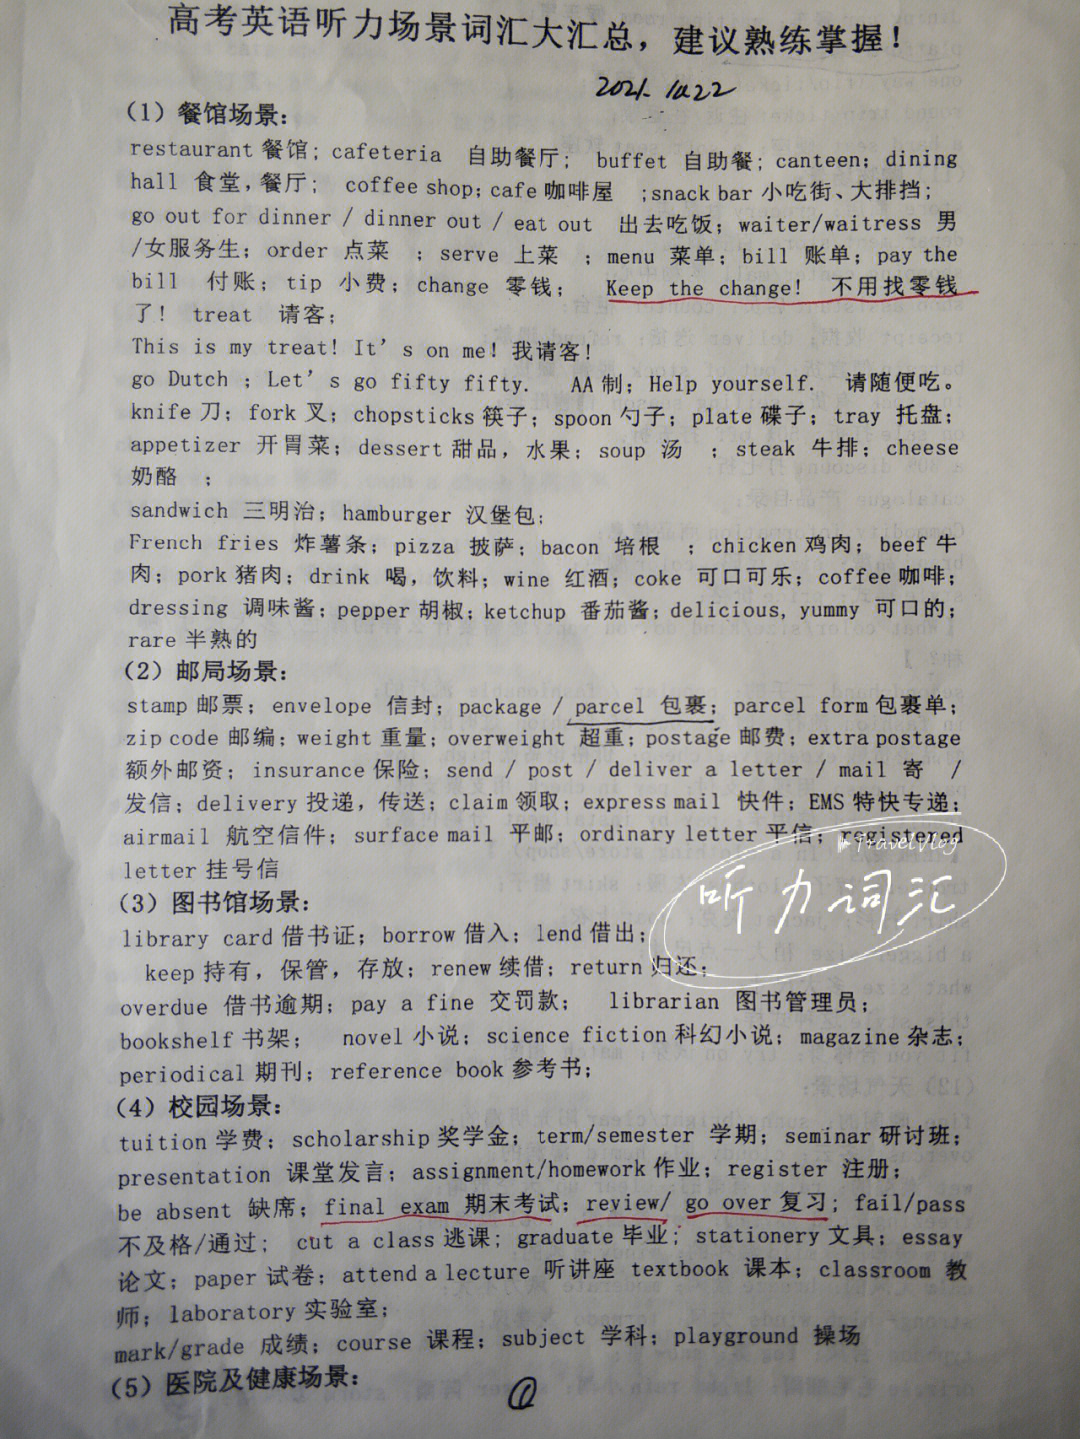 高考英语听力场景词汇大汇总，建议熟练掌握！
2021.10.22
（1）餐馆场景：
restaurant 餐馆；cafeteria 自助餐厅； buffet 自助餐；canteen；dining
hall 食堂，餐厅； coffee shop；cafe 咖啡屋 ；snack bar 小吃街、大排挡；
go out for dinner / dinner out / eat out 出去吃饭；waiter/waitress 男
/女服务生；order 点菜 ；serve 上菜 ；menu 菜单；bill 账单；pay the
bill 付账；tip 小费；change 零钱； Keep the change! 不用找零钱
了！ treat 请客；
This is my treat! It’s on me！我请客！
go Dutch ；Let’s go fifty fifty. AA 制；Help yourself. 请随便吃。
knife 刀；fork 叉；chopsticks 筷子；spoon 勺子；plate 碟子；tray 托盘；
appetizer 开胃菜；dessert 甜品，水果；soup 汤 ；steak 牛排；cheese
奶酪 ；
sandwich 三明治；hamburger 汉堡包；
French fries 炸薯条；pizza 披萨；bacon 培根 ；chicken 鸡肉；beef 牛
肉；pork 猪肉；drink 喝，饮料；wine 红酒；coke 可口可乐；coffee 咖啡；
dressing 调味酱；pepper 胡椒；ketchup 番茄酱；delicious, yummy 可口的；
rare 半熟的
（2）邮局场景：
stamp 邮票；envelope 信封；package / parcel 包裹；parcel form 包裹单；
zip code 邮编；weight 重量；overweight 超重；postage 邮费；extra postage
额外邮资；insurance 保险；send / post / deliver a letter / mail 寄 /
发信；delivery 投递，传送；claim 领取；express mail 快件；EMS 特快专递；
airmail 航空信件；surface mail 平邮；ordinary letter 平信；registered
letter 挂号信
TravelVlog
听力词汇
（3）图书馆场景：
library card 借书证；borrow 借入；lend 借出；
keep 持有，保管，存放；renew 续借；return 归还；
overdue 借书逾期；pay a fine 交罚款； librarian 图书管理员；
bookshelf 书架； novel 小说；science fiction 科幻小说；magazine 杂志；
periodical 期刊；reference book 参考书；
（4）校园场景：
tuition 学费；scholarship 奖学金；term/semester 学期；seminar 研讨班；
presentation 课堂发言；assignment/homework 作业；register 注册；
be absent 缺席；final exam 期末考试；review/ go over 复习；fail/pass
不及格/通过； cut a class 逃课；graduate 毕业；stationery 文具；essay
论文；paper 试卷；attend a lecture 听讲座 textbook 课本；classroom 教
师；laboratory 实验室；
mark/grade 成绩；course 课程；subject 学科；playground 操场
（5）医院及健康场景：
①